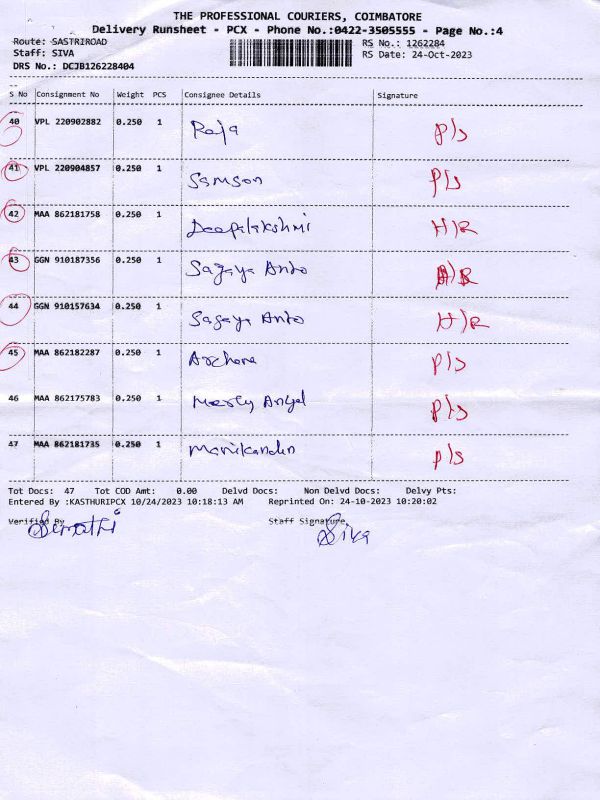 THE PROFESSIONAL COURIERS, COIMBATORE
Delivery Runsheet - PCX - Phone No.:0422-3505555 - Page No.:4
Route: SASTRIROAD RS No.: 1262284
Staff: SIVA RS Date: 24-Oct-2023
DRS No.: DCJB126228404
S No Consignment No Weight PCS Consignee Details Signature
40 VPL 220902882 0.250 1 Raja P/s
41 VPL 220904857 0.250 1 Samson P/s
42 MAA 862181758 0.250 1 Deepalakshmi H/R
43 GGN 910187356 0.250 1 Sagaya Anto H/R
44 GGN 910157634 0.250 1 Sagaya Anto H/R
45 MAA 862182287 0.250 1 Archana P/s
46 MAA 862175783 0.250 1 Mercy Angel P/s
47 MAA 862181735 0.250 1 Manikandan P/s
Tot Docs: 47 Tot COD Amt: 0.00 Delvd Docs: Non Delvd Docs: Delvy Pts:
Entered By :KASTHURIPCX 10/24/2023 10:18:13 AM Reprinted On: 24-10-2023 10:20:02
Verified By Staff Signature
Siva